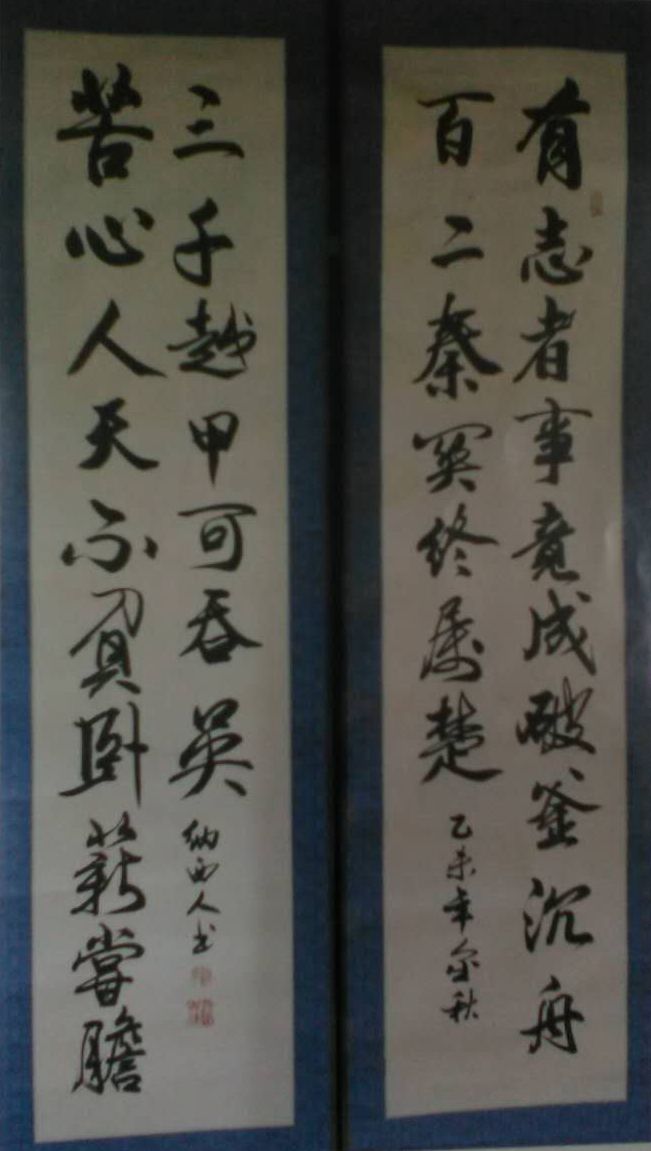 有志者事竟成破釜沉舟
百二秦关终属楚
乙未年金秋
苦心人天不負卧薪嘗膽
三千越甲可吞吴
纳西人书